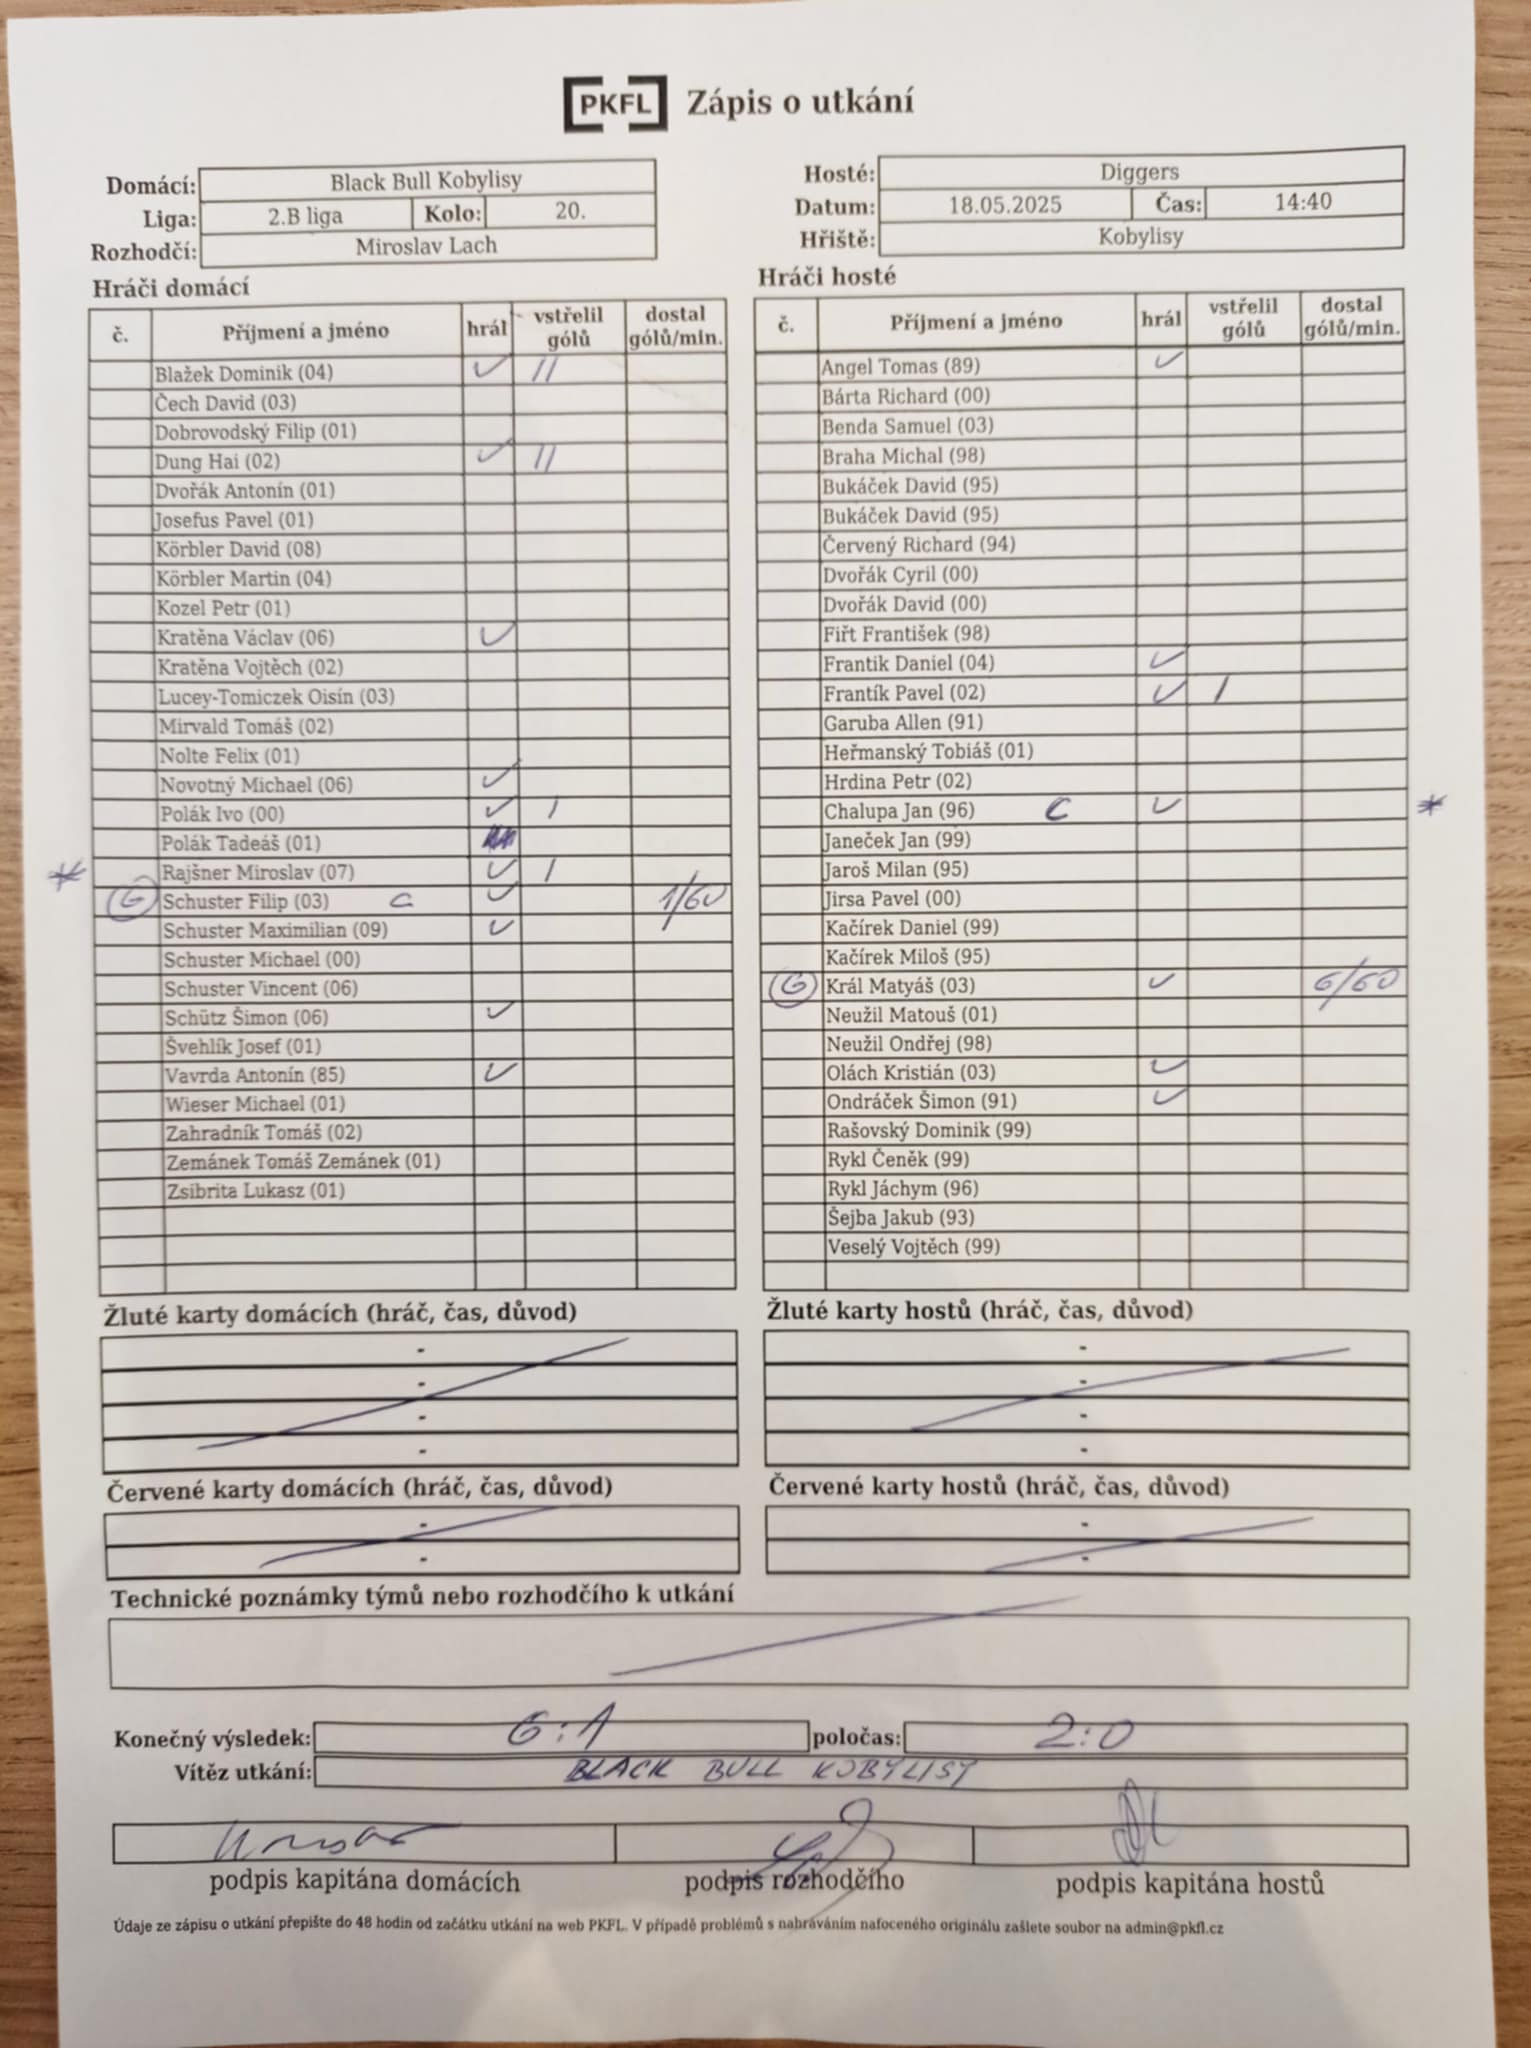 PKFL Zápis o utkání
Domácí: Black Bull Kobylisy
Liga: 2.B liga Kolo: 20.
Rozhodčí: Miroslav Lach
Hosté: Diggers
Datum: 18.05.2025 Čas: 14:40
Hřiště: Kobylisy
Hráči domácí
č. Příjmení a jméno hrál vstřelil gólů dostal gólů/min.
Blažek Dominik (04) ✓ II
Čech David (03)
Dobrovodský Filip (01)
Dung Hai (02) ✓ II
Dvořák Antonín (01)
Josefus Pavel (01)
Körbler David (08)
Körbler Martin (04)
Kozel Petr (01)
Kratěna Václav (06) ✓
Kratěna Vojtěch (02)
Lucey-Tomiczek Oisín (03)
Mirvald Tomáš (02)
Nolte Felix (01)
Novotný Michael (06) ✓
Polák Ivo (00) ✓ I
Polák Tadeáš (01)
* Rajšner Miroslav (07) ✓ I
G Schuster Filip (03) C ✓ 1/60
Schuster Maximilian (09) ✓
Schuster Michael (00)
Schuster Vincent (06)
Schütz Šimon (06) ✓
Švehlík Josef (01)
Vavrda Antonín (85) ✓
Wieser Michael (01)
Zahradník Tomáš (02)
Zemánek Tomáš Zemánek (01)
Zsibrita Lukasz (01)
Hráči hosté
č. Příjmení a jméno hrál vstřelil gólů dostal gólů/min.
Angel Tomas (89) ✓
Bárta Richard (00)
Benda Samuel (03)
Braha Michal (98)
Bukáček David (95)
Bukáček David (95)
Červený Richard (94)
Dvořák Cyril (00)
Dvořák David (00)
Fiřt František (98)
Frantik Daniel (04) ✓
Frantík Pavel (02) ✓ I
Garuba Allen (91)
Heřmanský Tobiáš (01)
Hrdina Petr (02)
Chalupa Jan (96) C ✓ *
Janeček Jan (99)
Jaroš Milan (95)
Jirsa Pavel (00)
Kačírek Daniel (99)
Kačírek Miloš (95)
G Král Matyáš (03) ✓ 6/60
Neužil Matouš (01)
Neužil Ondřej (98)
Olách Kristián (03) ✓
Ondráček Šimon (91) ✓
Rašovský Dominik (99)
Rykl Čeněk (99)
Rykl Jáchym (96)
Šejba Jakub (93)
Veselý Vojtěch (99)
Žluté karty domácích (hráč, čas, důvod)
-
-
-
-
Žluté karty hostů (hráč, čas, důvod)
-
-
-
-
Červené karty domácích (hráč, čas, důvod)
-
-
Červené karty hostů (hráč, čas, důvod)
-
-
Technické poznámky týmů nebo rozhodčího k utkání
Konečný výsledek: 6:1 poločas: 2:0
Vítěz utkání: BLACK BULL KOBYLISY
podpis kapitána domácích podpis rozhodčího podpis kapitána hostů
Údaje ze zápisu o utkání přepište do 48 hodin od začátku utkání na web PKFL. V případě problémů s nahráváním nafoceného originálu zašlete soubor na admin@pkfl.cz